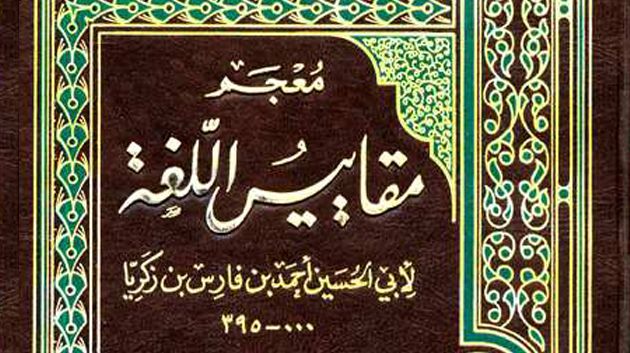 مُعْجَم
مقاييسُ اللّغة
لِأبي الحُسَين أحمَد بن فارِس بن زكَرِيّا
٠٠٠-٣٩٥